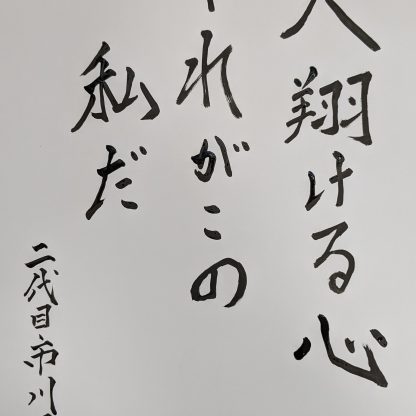 翔ける心
れがこの
私だ
二代目市川